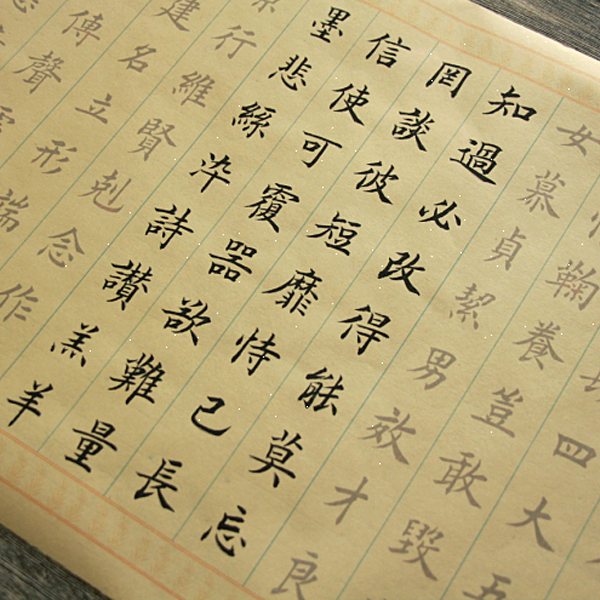 四大五
鞠養豈敢毀
女慕貞絜男效才良
知過必改得能莫忘
罔談彼短靡恃己長
信使可覆器欲難量
墨悲絲染詩讚羔羊
行維賢剋念作
建名立形端
傳聲